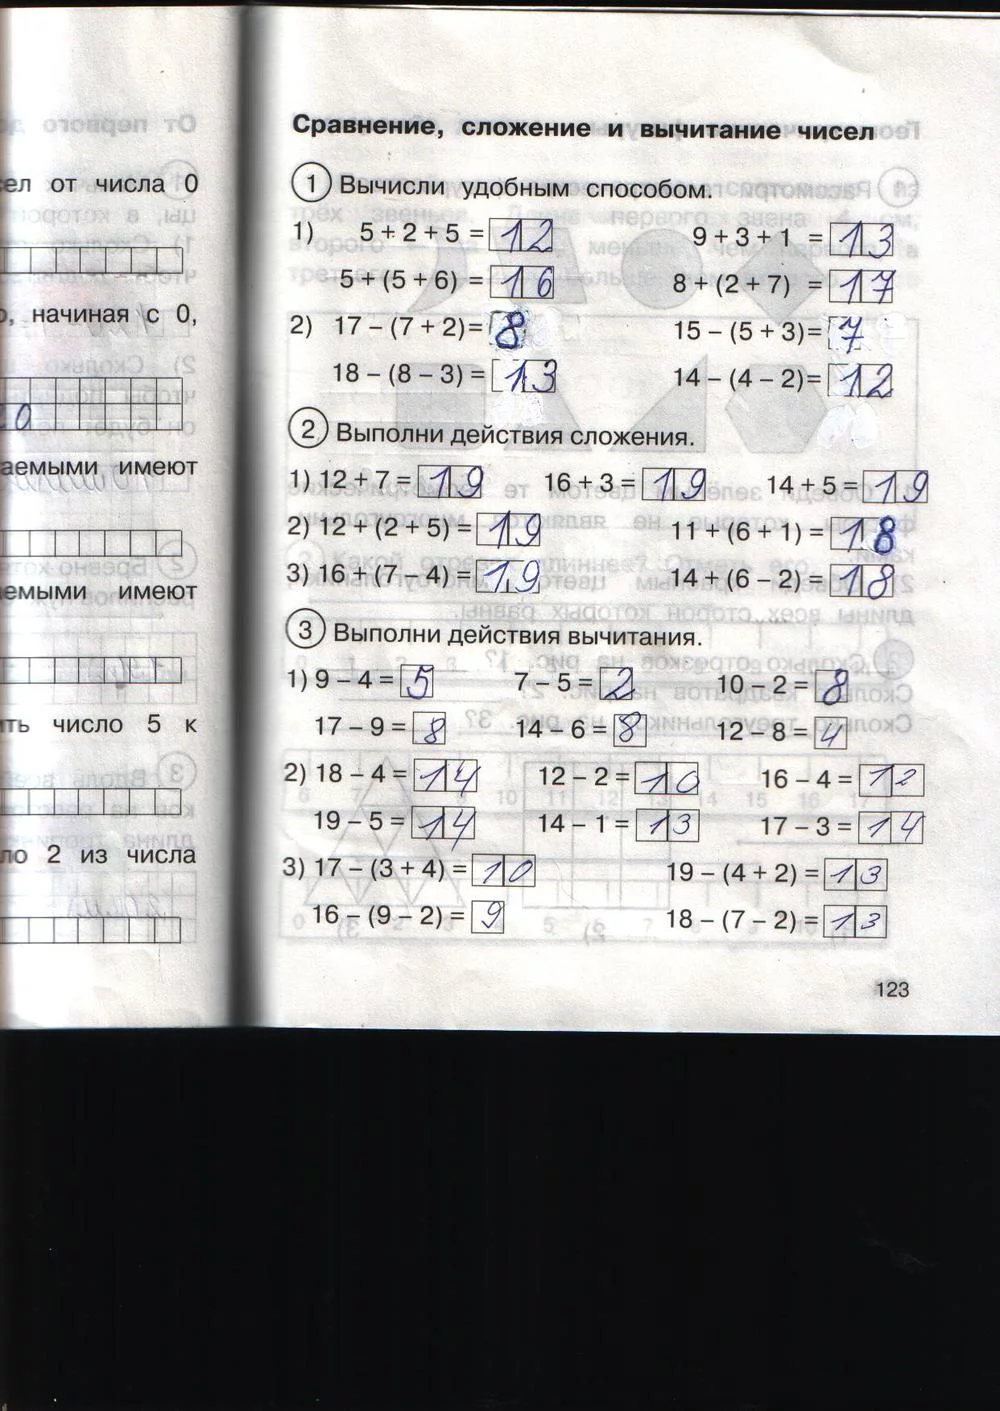 сел от числа 0
, начиная с 0,
20
аемыми имеют
емыми имеют
ить число 5 к
ло 2 из числа
Сравнение, сложение и вычитание чисел
1 Вычисли удобным способом.
1) 5 + 2 + 5 = 12 9 + 3 + 1 = 13
5 + (5 + 6) = 16 8 + (2 + 7) = 17
2) 17 – (7 + 2) = 8 15 – (5 + 3) = 7
18 – (8 – 3) = 13 14 – (4 – 2) = 12
2 Выполни действия сложения.
1) 12 + 7 = 19 16 + 3 = 19 14 + 5 = 19
2) 12 + (2 + 5) = 19 11 + (6 + 1) = 18
3) 16 + (7 – 4) = 19 14 + (6 – 2) = 18
3 Выполни действия вычитания.
1) 9 – 4 = 5 7 – 5 = 2 10 – 2 = 8
17 – 9 = 8 14 – 6 = 8 12 – 8 = 4
2) 18 – 4 = 14 12 – 2 = 10 16 – 4 = 12
19 – 5 = 14 14 – 1 = 13 17 – 3 = 14
3) 17 – (3 + 4) = 10 19 – (4 + 2) = 13
16 – (9 – 2) = 9 18 – (7 – 2) = 13
123